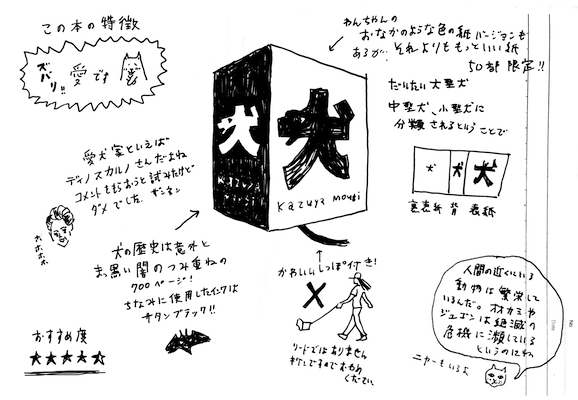 この本の特徴
ズバリ!!
愛です
わんちゃんの
おなかのような色の紙バージョンも
あるが、それよりももっといい紙
50部限定!!
だいたい大型犬
中型犬、小型犬に
分類されるということで
犬 犬 犬
裏表紙 背 表紙
犬
Kazuya mouri
犬
Kazuya mouri
愛犬家といえば
ディノスカルノさんだよね
コメントをもらおうと試みたけど
ダメでした。ザンネン
ホホホホ
犬の歴史は意外と
まっ黒い闇のつみ重ねの
700ページ!
ちなみに使用したインクは
サタンブラック!!
かわいいしっぽ付き!
リードではありません
おすすめ度
★★★★★
人間の近くにいる
動物は繁栄して
いるんだ。オオカミや
ジュゴンは絶滅の
危機に瀕している
というのにね
ニャーもいるよ
No.
Date